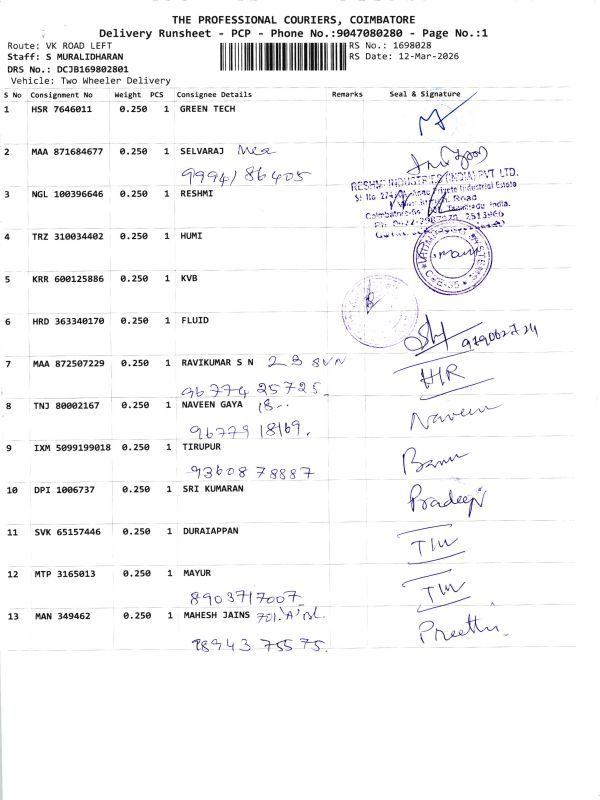 THE PROFESSIONAL COURIERS, COIMBATORE
Delivery Runsheet - PCP - Phone No.:9047080280 - Page No.:1
Route: VK ROAD LEFT RS No.: 1698028
Staff: S MURALIDHARAN RS Date: 12-Mar-2026
DRS No.: DCJB169802801
Vehicle: Two Wheeler Delivery
S No Consignment No Weight PCS Consignee Details Remarks Seal & Signature
1 HSR 7646011 0.250 1 GREEN TECH
2 MAA 871684677 0.250 1 SELVARAJ
99941 86405
RESHMI INDUSTRIES (INDIA) PVT LTD.
3 NGL 100396646 0.250 1 RESHMI
4 TRZ 310034402 0.250 1 HUMI
5 KRR 600125886 0.250 1 KVB
6 HRD 363340170 0.250 1 FLUID
7 MAA 872507229 0.250 1 RAVIKUMAR S N 23 SVN HR
96774 25725.
8 TNJ 80002167 0.250 1 NAVEEN GAYA 18-- Naveen
96779 18169.
9 IXM 5099199018 0.250 1 TIRUPUR Banu
93608 78887
10 DPI 1006737 0.250 1 SRI KUMARAN Pradeep
11 SVK 65157446 0.250 1 DURAIAPPAN
12 MTP 3165013 0.250 1 MAYUR
8903717007
13 MAN 349462 0.250 1 MAHESH JAINS 701.'A' Bl. Preethi
98943 75575.